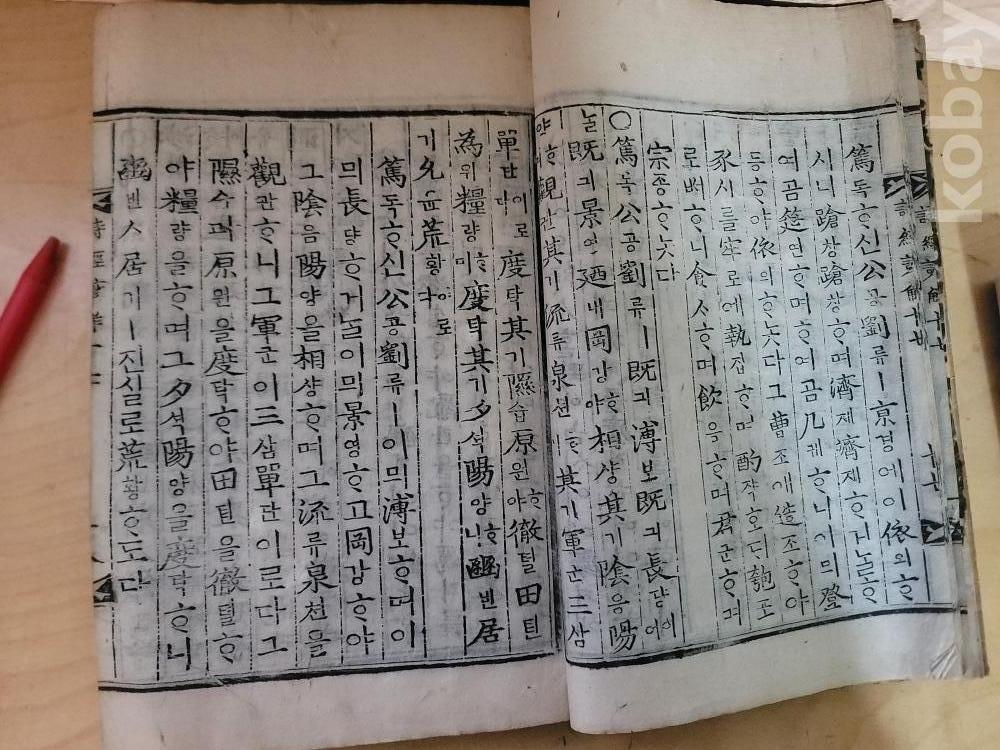 篤독ᄒᆞ신公공劉류ㅣ京경에이依의ᄒᆞ
시니蹌창蹌창ᄒᆞ며濟제濟제ᄒᆞ거ᄂᆞᆯᄒᆞ
여곰筵연ᄒᆞ며ᄒᆞ여곰几궤ᄒᆞ니이믜登
등ᄒᆞ야依의ᄒᆞ놋다그曹조애造조ᄒᆞ야
豕시를牢로에執집ᄒᆞ며酌쟉호ᄃᆡ匏포
로ᄡᅥᄒᆞ니食ᄉᆞᄒᆞ며飮음ᄒᆞ며君군ᄒᆞ며
宗종ᄒᆞ놋다
○篤독公공劉류ㅣ旣긔溥보旣긔長댱이어
ᄂᆞᆯ旣긔景영廼내岡강야相샹其기陰음陽
양ᄒᆞ며觀관其기流류泉쳔ᄒᆞ니其기軍군三삼
單단이로다度탁其기隰습原원ᄒᆞ야徹텰田뎐
為위糧량ᄒᆞ며度탁其기夕셕陽양ᄒᆞ니豳빈居
거允윤荒황이로다
篤독ᄒᆞ신公공劉류ㅣ이믜溥보ᄒᆞ며이
믜長댱ᄒᆞ거ᄂᆞᆯ이믜景영ᄒᆞ고岡강ᄒᆞ야
그陰음陽양을相샹ᄒᆞ며그流류泉쳔을
觀관ᄒᆞ니그軍군이三삼單단이로다그
隰습과原원을度탁ᄒᆞ야田뎐을徹텰ᄒᆞ
야糧량을ᄒᆞ며그夕셕陽양을度탁ᄒᆞ니
豳빈ㅅ居거ㅣ진실로荒황ᄒᆞ도다
kobay